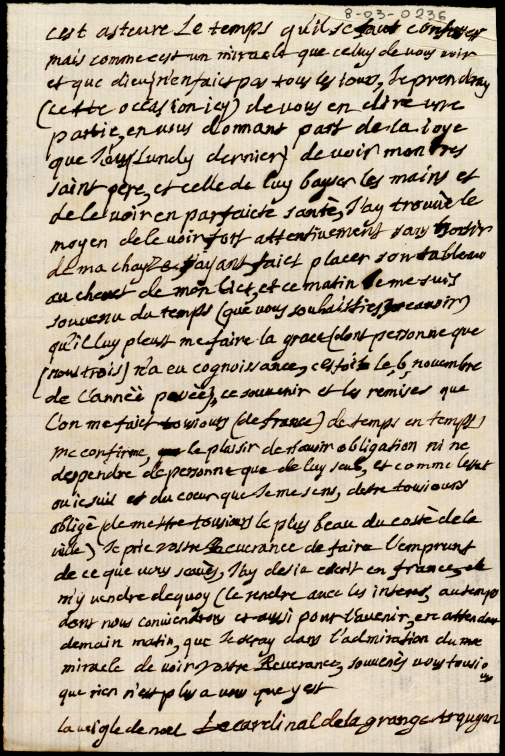 8-03-0236
c'est asteure Le temps qu'il se faut confesser
mais comme c'est un miracle que celuy de vous voir
et que dieu n'en faict pas tous les iours, Je prendray
(cette occasion icy) de vous en dire une
partie, en vous donnant part de la ioye
que J'eus (Lundy dernier) de voir mon tres
saint pere, et celle de luy bayser les mains et
de le voir en parfaicte santé, J'ay trouvé le
moyen de le voir fort attentivement sans sortir
de ma chayze ayant faict placer son tableau
au chevet de mon lict, et ce matin Je me suis
souvenu du temps (que vous souhaittiés)
qu'il luy pleust me faire la grace (dont personne que
(nous trois) n'a eu cognoissance, c'estoit le 6 novembre
de l'année passée) ce souvenir et les remises que
l'on me faict tousiours (de france) de temps en temps
me confirme, le plaisir de n'avoir obligation ni ne
despendre de personne que de luy seul, et comme l'estat
ou ie suis et du coeur que Je me sens, d'estre tousiours
obligé (de mettre tousiours le plus beau du costé de la
ville) Je prie vostre Reverance de faire l'emprunt
de ce que vous scavés, J'ay desia escrit en france, de
m'y vendre de quoy (le rendre avec les interes, au temps
dont nous conviendrons et aussi pour l'avenir, en attendant
demain matin, que Je seray dans l'admiration du me
miracle de voir vostre Reverance, souvenés vous tousiours
que rien n'est plus a vous que yest
la veigle de noel Le cardinal de la grange Arquyan